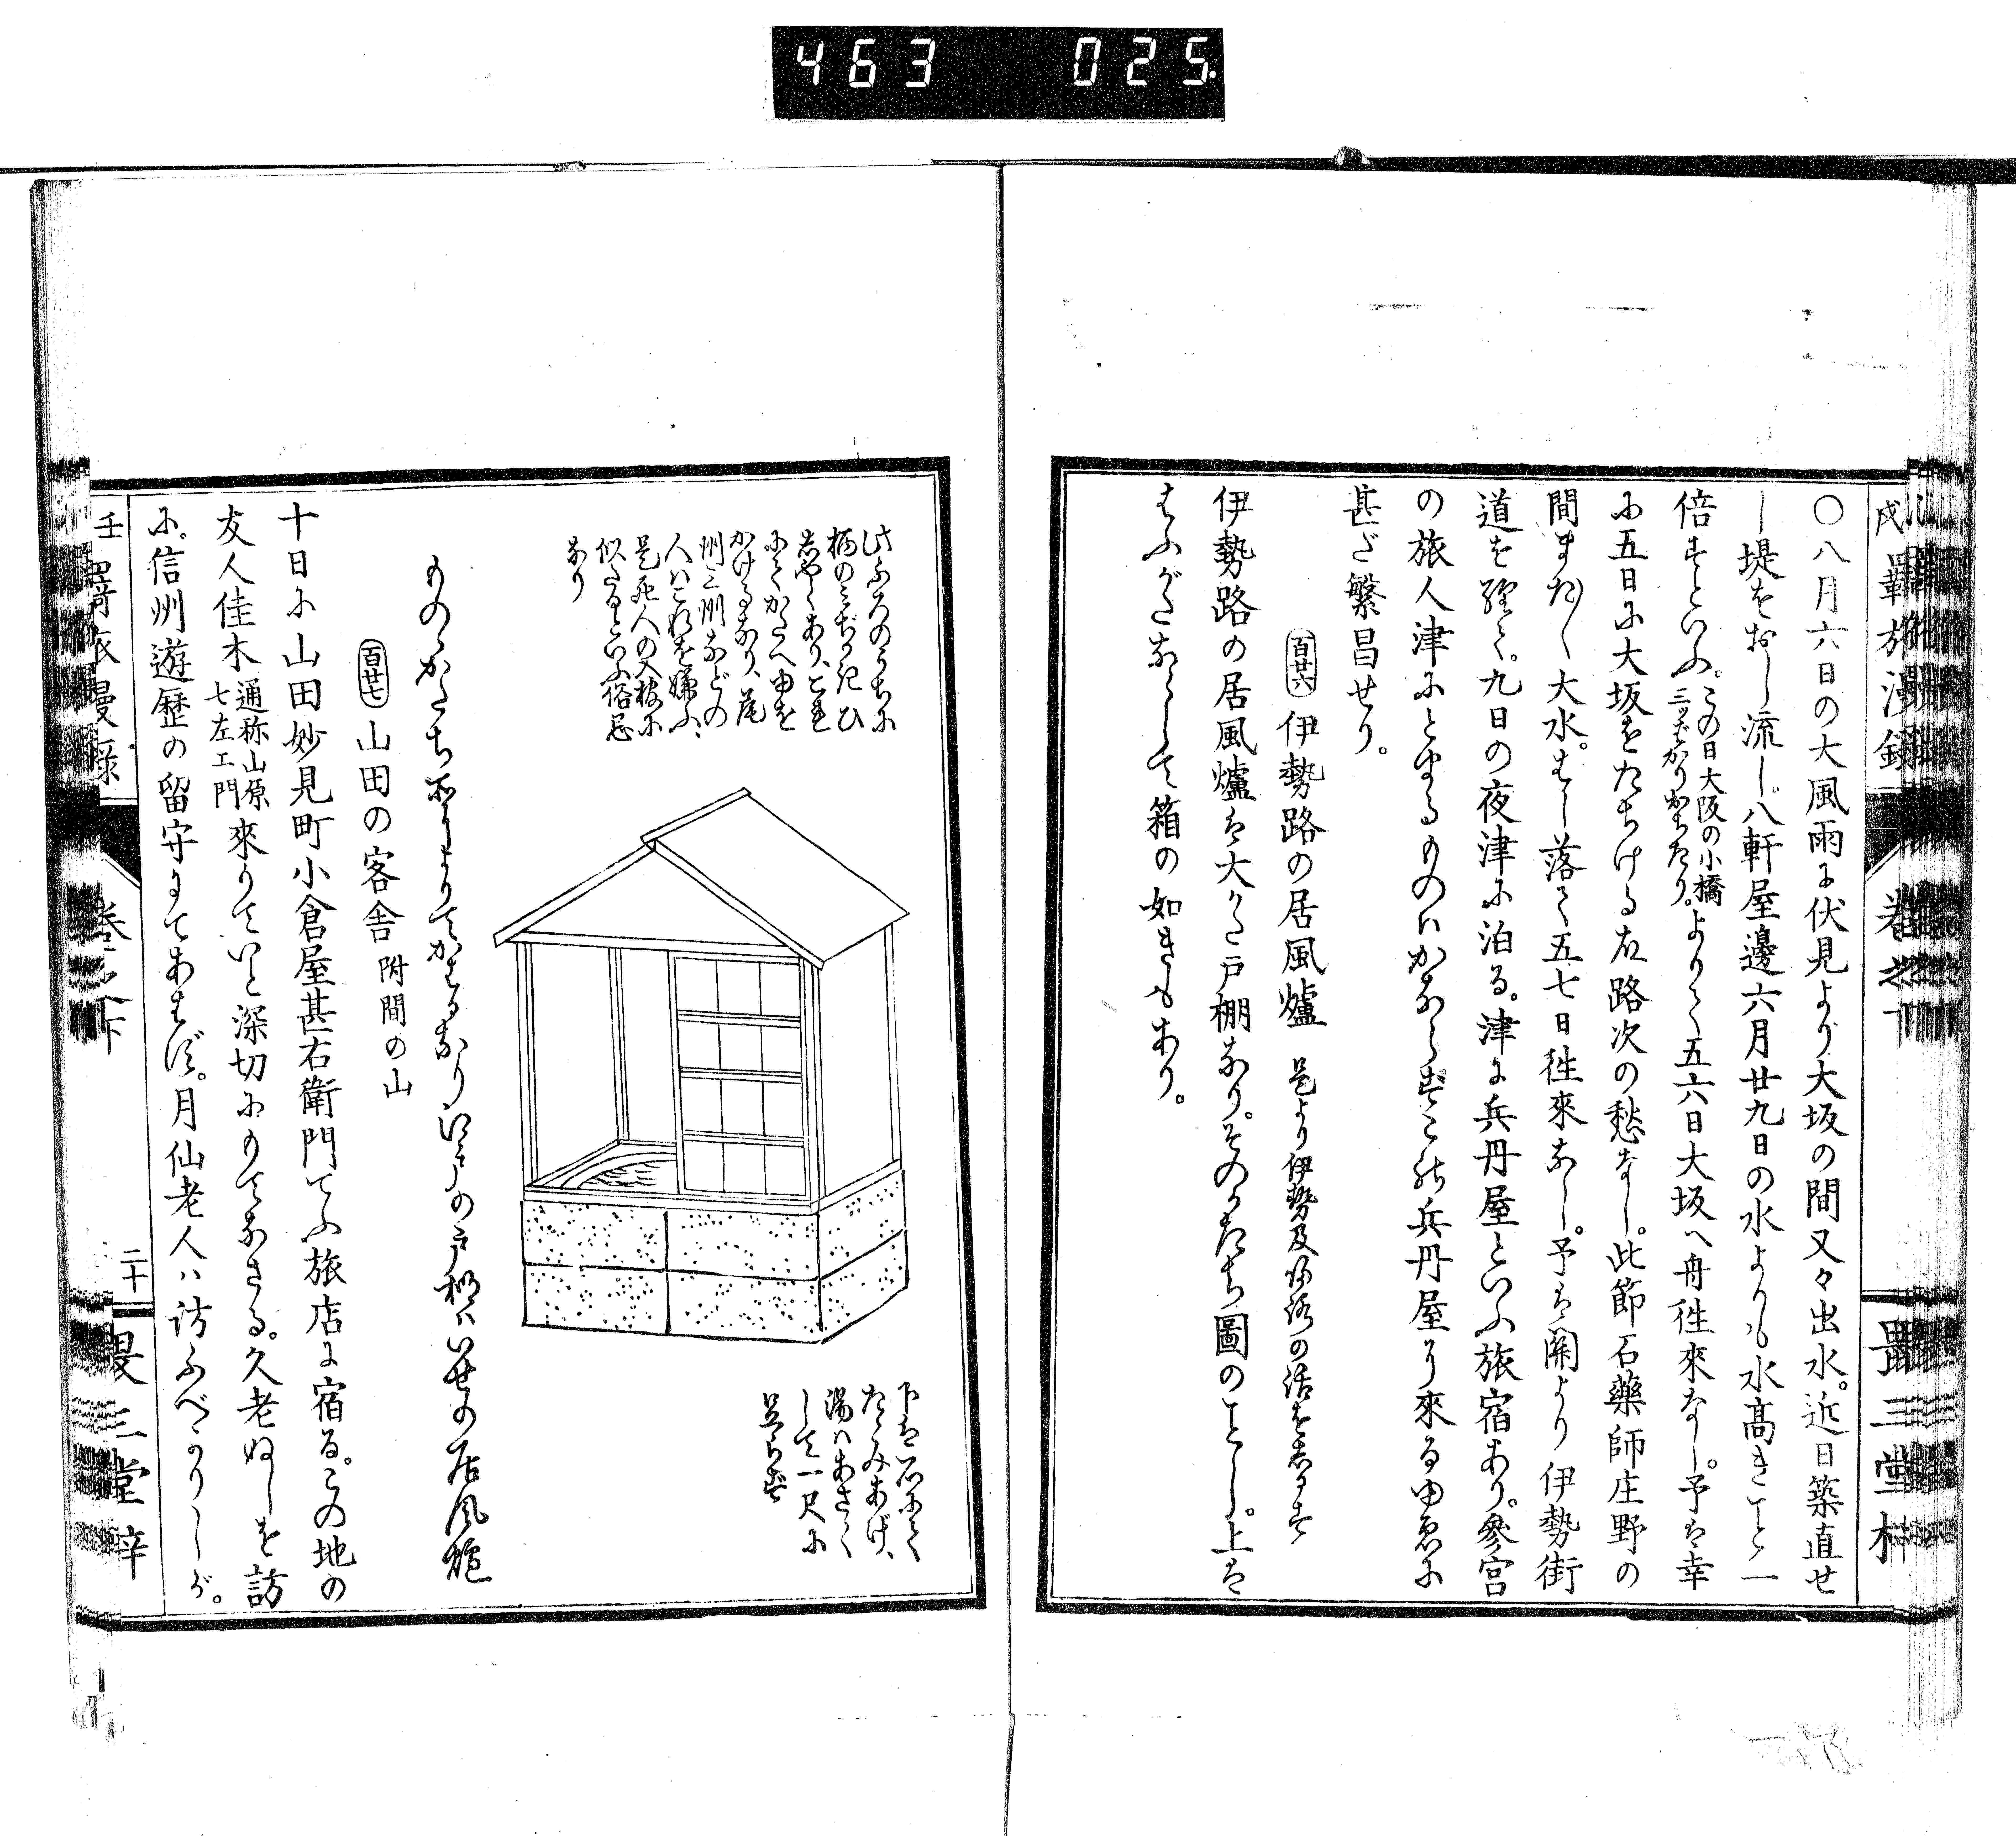 463 025
〇八月六日の大風雨に伏見より大坂の間又々出水。近日築直せ
し堤をおし流し。八軒屋邊六月廿九日の水よりも水高きこと一
倍すといふ。この日大阪の小橋
三ツばかりおちたり。よりて五六日大坂へ舟徃來なし。予は幸
に五日に大坂をたちける故路次の愁なし。此節石藥師庄野の
間また〱大水。はし落て五七日徃來なし。予は關より伊勢街
道を經て。九日の夜津に泊る。津に兵丹屋といふ旅宿あり。參宮
の旅人津にとまるものハかならずこの兵丹屋り來るゆゑに
甚だ繁昌せり。
百廿六 伊勢路の居風爐 是より伊勢及歸路の話をしるす
伊勢路の居風爐は大かた戸棚なり。そのかたち圖のことし。上は
はふがたなくして箱の如きもあり。
此ふろのうちに
かけるなり、尾
州三州などの
人ハこれを嫌ふ、
是死人の入棺に
似たるといふ俗忌
なり
下は石にて
たゝみあげ、
湯ハあさく
して一尺に
足らず
ものゝかたち所によりてかはるなり江戸の戸棚ハいせの居風爐
百廿七 山田の客舎 附間の山
十日に山田妙見町小倉屋甚右衛門てふ旅店に宿る。この地の
友人佳木通称山原
七左エ門來りていと深切にもてなさる。久老ぬしを訪
に。信州遊歷の留守にてあはず。月仙老人ハ訪ふべかりしが。
羇旅漫録
卷之下
二十
畏三堂梓